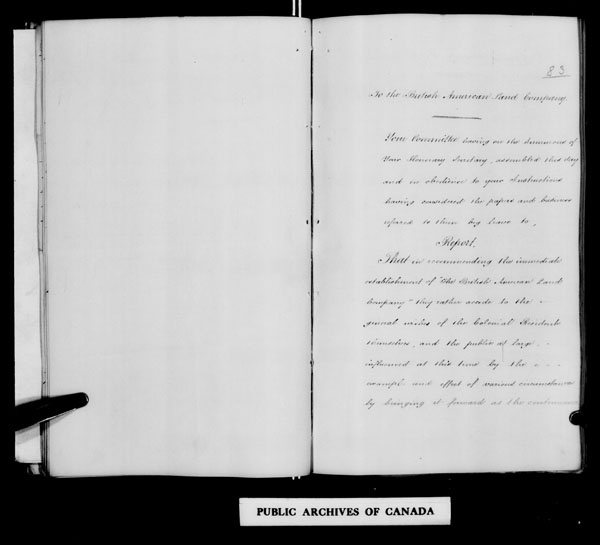 83
To the British American Land Company
Your Committee having on the Summons of
Your Honorary Secretary, assembled this day
and in obedience to your Instructions
having considered the papers and business
referred to them beg leave to,
Report.
That in recommending the immediate
establishment of "The British American Land
Company" they rather accede to the
general wishes of the Colonial Residents
themselves, and the public at large
influenced at this time by the
example and effect of various circumstances
by bringing it forward as the
PUBLIC ARCHIVES OF CANADA